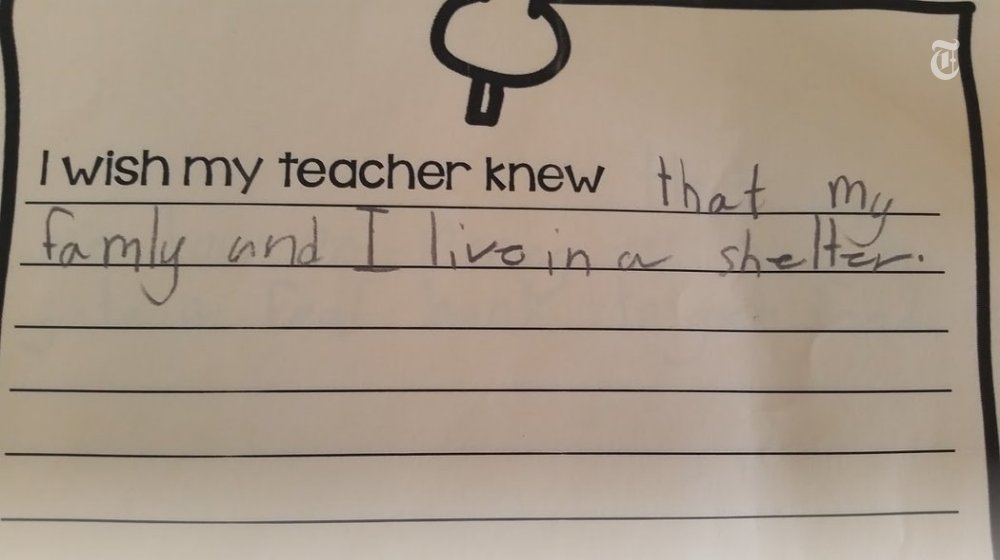 T
I wish my teacher knew that my
famly and I live in a shelter.